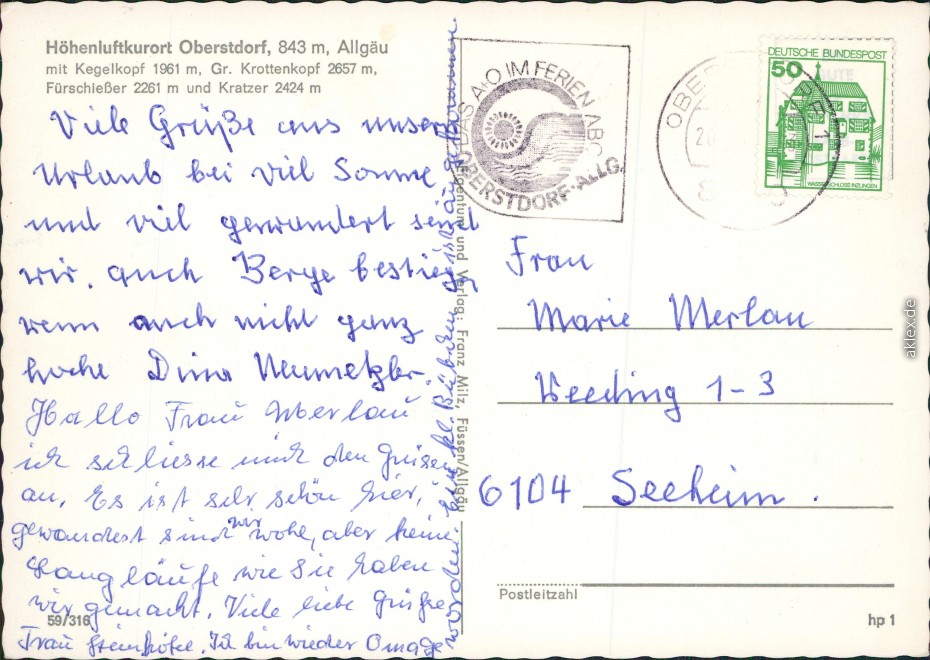 Höhenluftkurort Oberstdorf, 843 m, Allgäu
mit Kegelkopf 1961 m, Gr. Krottenkopf 2657 m,
Fürschießer 2261 m und Kratzer 2424 m
Viele Grüße aus unserm
Urlaub bei viel Sonne
und viel gewandert sind
wir. auch Berge bestiegen
wenn auch nicht ganz
hohe Dina
Hallo Frau Merlau
ich schliesse mich den Grüsen
an. Es ist sehr schön hier,
gewandert sind wir wohl, aber keine
Langläufe wie Sie haben
wir gemacht. Viele liebe Grüsse
Frau Ich bin wieder Oma ge
worden. Ein kl. Bübchen ist angekommen.
59/316
Eigentum und Verlag: Franz Milz, Füssen/Allgäu
DAS A+O IM FERIEN ABC
OBERSTDORF-ALLG.
DEUTSCHE BUNDESPOST
50
WASSERSCHLOSS INZLINGEN
Frau
Marie Merlau
Weeding 1-3
6104 Seeheim.
Postleitzahl
hp 1
aklex.de